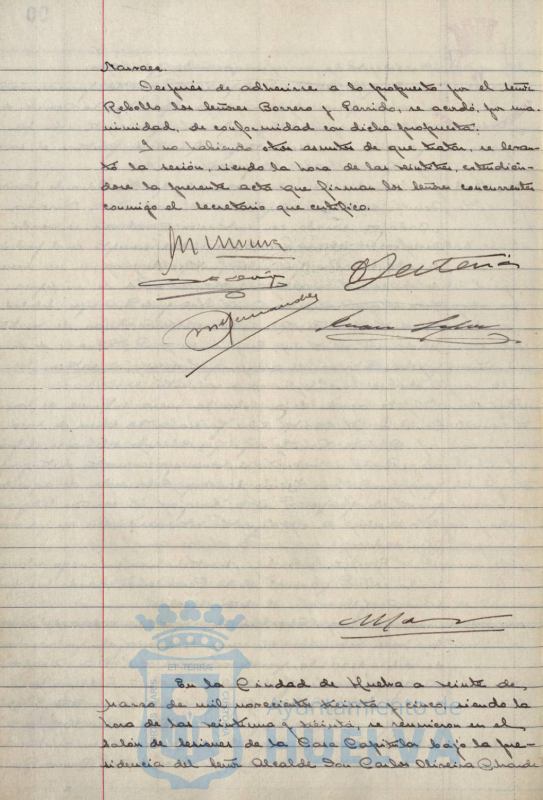 Narvaez.
Después de adherirse a lo propuesto por el señor
Rebollo los señores Borrero y Garrido, se acordó, por una-
nimidad, de conformidad con dicha propuesta.
Y no habiendo otros asuntos de que tratar, se levan-
tó la sesión, siendo la hora de las veintitres, extendién-
dose la presente acta que firman los señores concurrentes
conmigo el secretario que certifico.
En la Ciudad de Huelva a veinte de
Marzo de mil novecientos treinta y cinco, siendo la
hora de las veintiuna y treinta, se reunieron en el
salón de sesiones de la Casa Capitular bajo la pre-
sidencia del señor Alcalde Don Carlos Oliveira
Ayuntamiento de
HUELVA